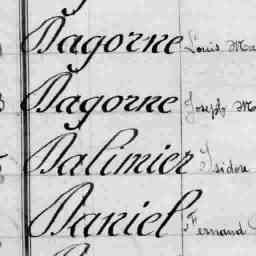 Dagorne Louis Ma
Dagorne Joseph M
Dalimier Isidore
Daniel Fernand